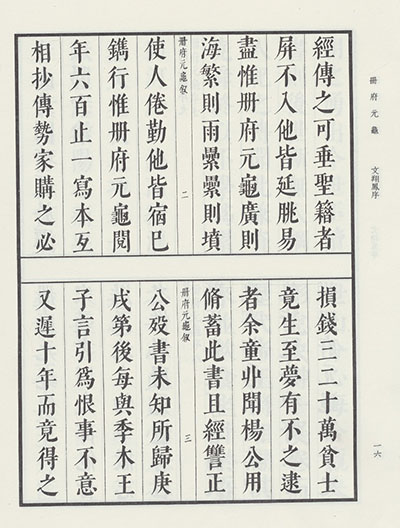 册府元龜 文翔鳳序
經傳之可垂聖籍者
屏不入他皆延眺易
盡惟册府元龜廣則
海繁則雨纍纍則墳
册府元龜叙 二
使人倦勤他皆宿巳
鐫行惟册府元龜閱
年六百止一寫本互
相抄傳勢家購之必
損錢三二十萬貧士
竟生至夢有不之逮
者余童丱聞楊公用
脩蓄此書且經讐正
册府元龜叙 三
公歿書未知所歸庚
戌第後每與季木王
子言引爲恨事不意
又遲十年而竟得之
一六